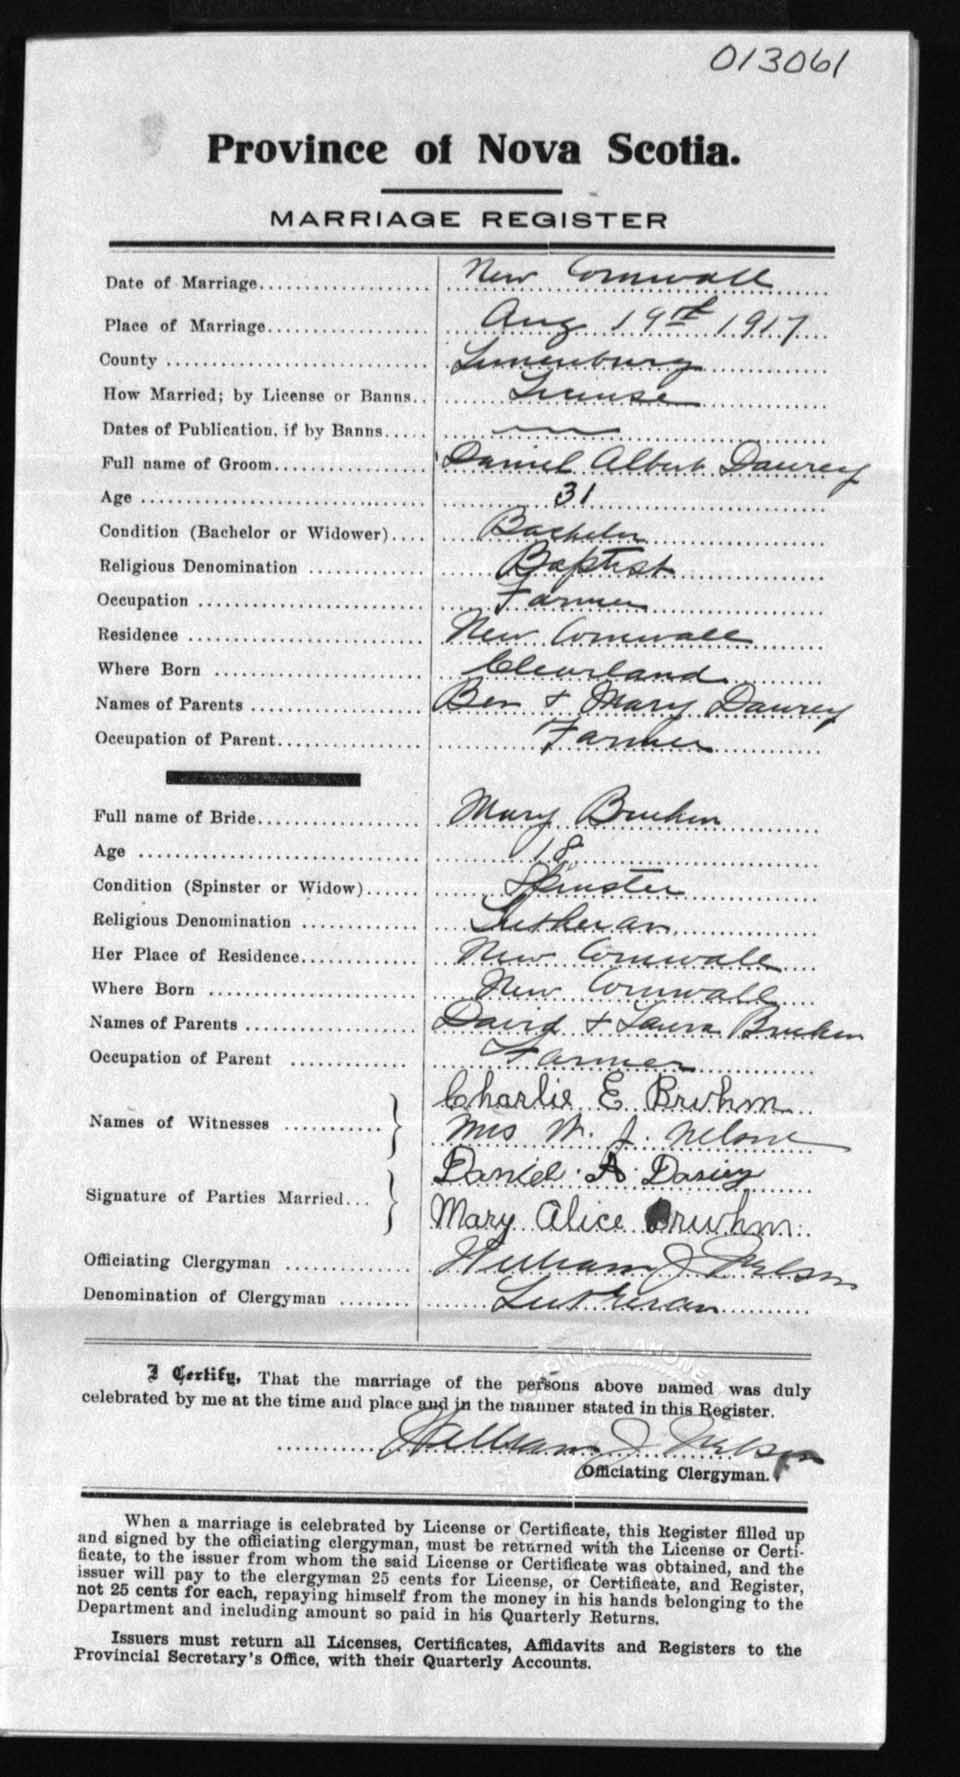 013061
Province of Nova Scotia.
MARRIAGE REGISTER
Date of Marriage.................... New Cornwall
Place of Marriage.................. Aug 19th 1917
County ............................. Lunenburg
How Married; by License or Banns.. License
Dates of Publication, if by Banns.....
Full name of Groom................. Daniel Albert Daurey
Age ................................ 31
Condition (Bachelor or Widower).... Bachelor
Religious Denomination ............ Baptist
Occupation ......................... Farmer
Residence .......................... New Cornwall
Where Born ........................ Cleverland
Names of Parents ................... Ben & Mary Daurey
Occupation of Parent................ Farmer
Full name of Bride................... Mary Bruhm
Age ................................ 18
Condition (Spinster or Widow)...... Spinster
Religious Denomination ............ Lutheran
Her Place of Residence.............. New Cornwall
Where Born ........................ New Cornwall
Names of Parents ................... David & Laura Bruhm
Occupation of Parent .............. Farmer
Charlie E Bruhm
Names of Witnesses ............
Mrs W. J.
Daniel A
Signature of Parties Married...
Mary Alice Bruhm
Officiating Clergyman .............. William J Nelson
Denomination of Clergyman ........ Lutheran
I Certify, That the marriage of the persons above named was duly
celebrated by me at the time and place and in the manner stated in this Register.
William J Nelson
Officiating Clergyman.
When a marriage is celebrated by License or Certificate, this Register filled up
and signed by the officiating clergyman, must be returned with the License or Certi-
ficate, to the issuer from whom the said License or Certificate was obtained, and the
issuer will pay to the clergyman 25 cents for License, or Certificate, and Register,
not 25 cents for each, repaying himself from the money in his hands belonging to the
Department and including amount so paid in his Quarterly Returns.
Issuers must return all Licenses, Certificates, Affidavits and Registers to the
Provincial Secretary's Office, with their Quarterly Accounts.